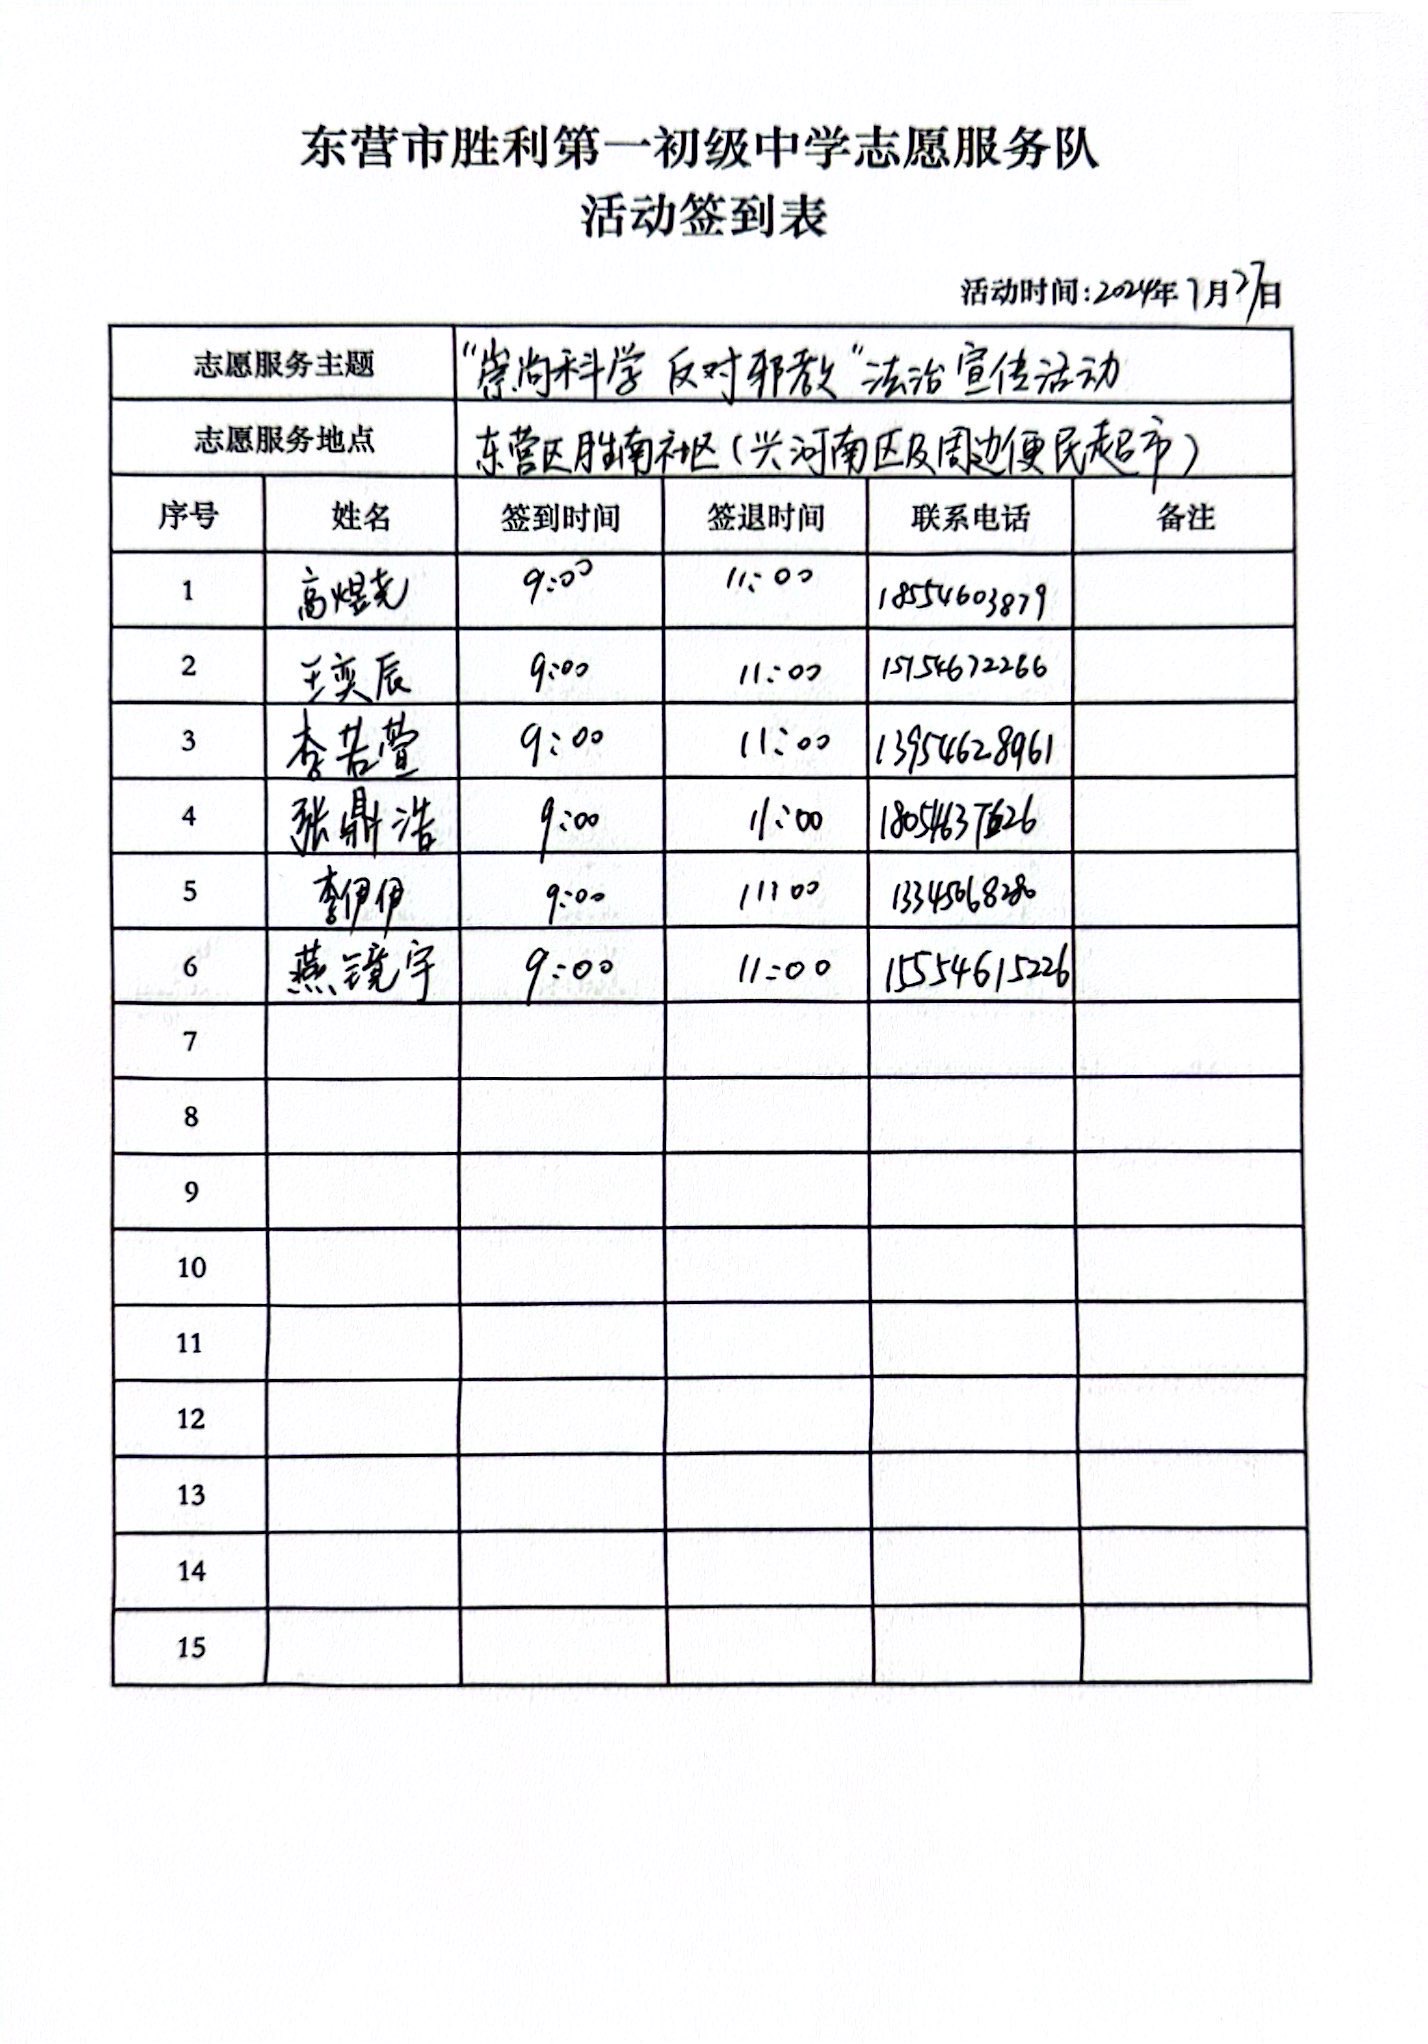 东营市胜利第一初级中学志愿服务队
活动签到表
活动时间:2024年7月27日
志愿服务主题 “崇尚科学 反对邪教”法治宣传活动
志愿服务地点 东营区胜南社区(兴河南区及周边便民超市)
序号 姓名 签到时间 签退时间 联系电话 备注
1 高煜尧 9:00 11:00 18554603879
2 王奕辰 9:00 11:00 15154672266
3 李若萱 9:00 11:00 13954628961
4 张鼎浩 9:00 11:00
5 李伊伊 9:00 11:00
6 燕镜宇 9:00 11:00 15554615226
7
8
9
10
11
12
13
14
15